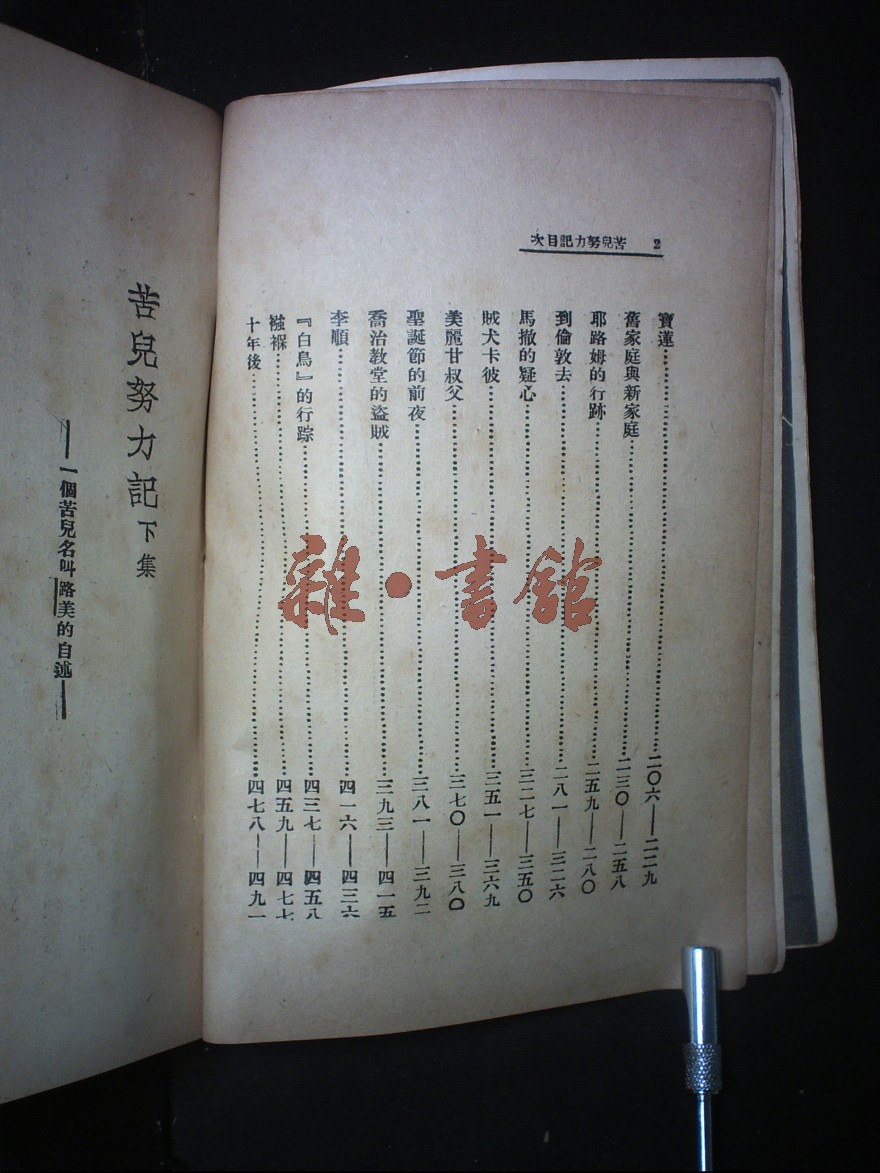 2 苦兒努力記目次
寶蓮……二〇六——二二九
舊家庭與新家庭……二三〇——二五八
耶路姆的行跡……二五九——二八〇
到倫敦去……二八一——三二六
馬撤的疑心……三二七——三五〇
賊犬卡彼……三五一——三六九
美麗甘叔父……三七〇——三八〇
聖誕節的前夜……三八一——三九二
喬治教堂的盜賊……三九三——四一五
李順……四一六——四三六
『白鳥』的行踪……四三七——四五八
襁褓……四五九——四七七
十年後……四七八——四九一
苦兒努力記下集
——一個苦兒名叫路美的自述——
雜·書館